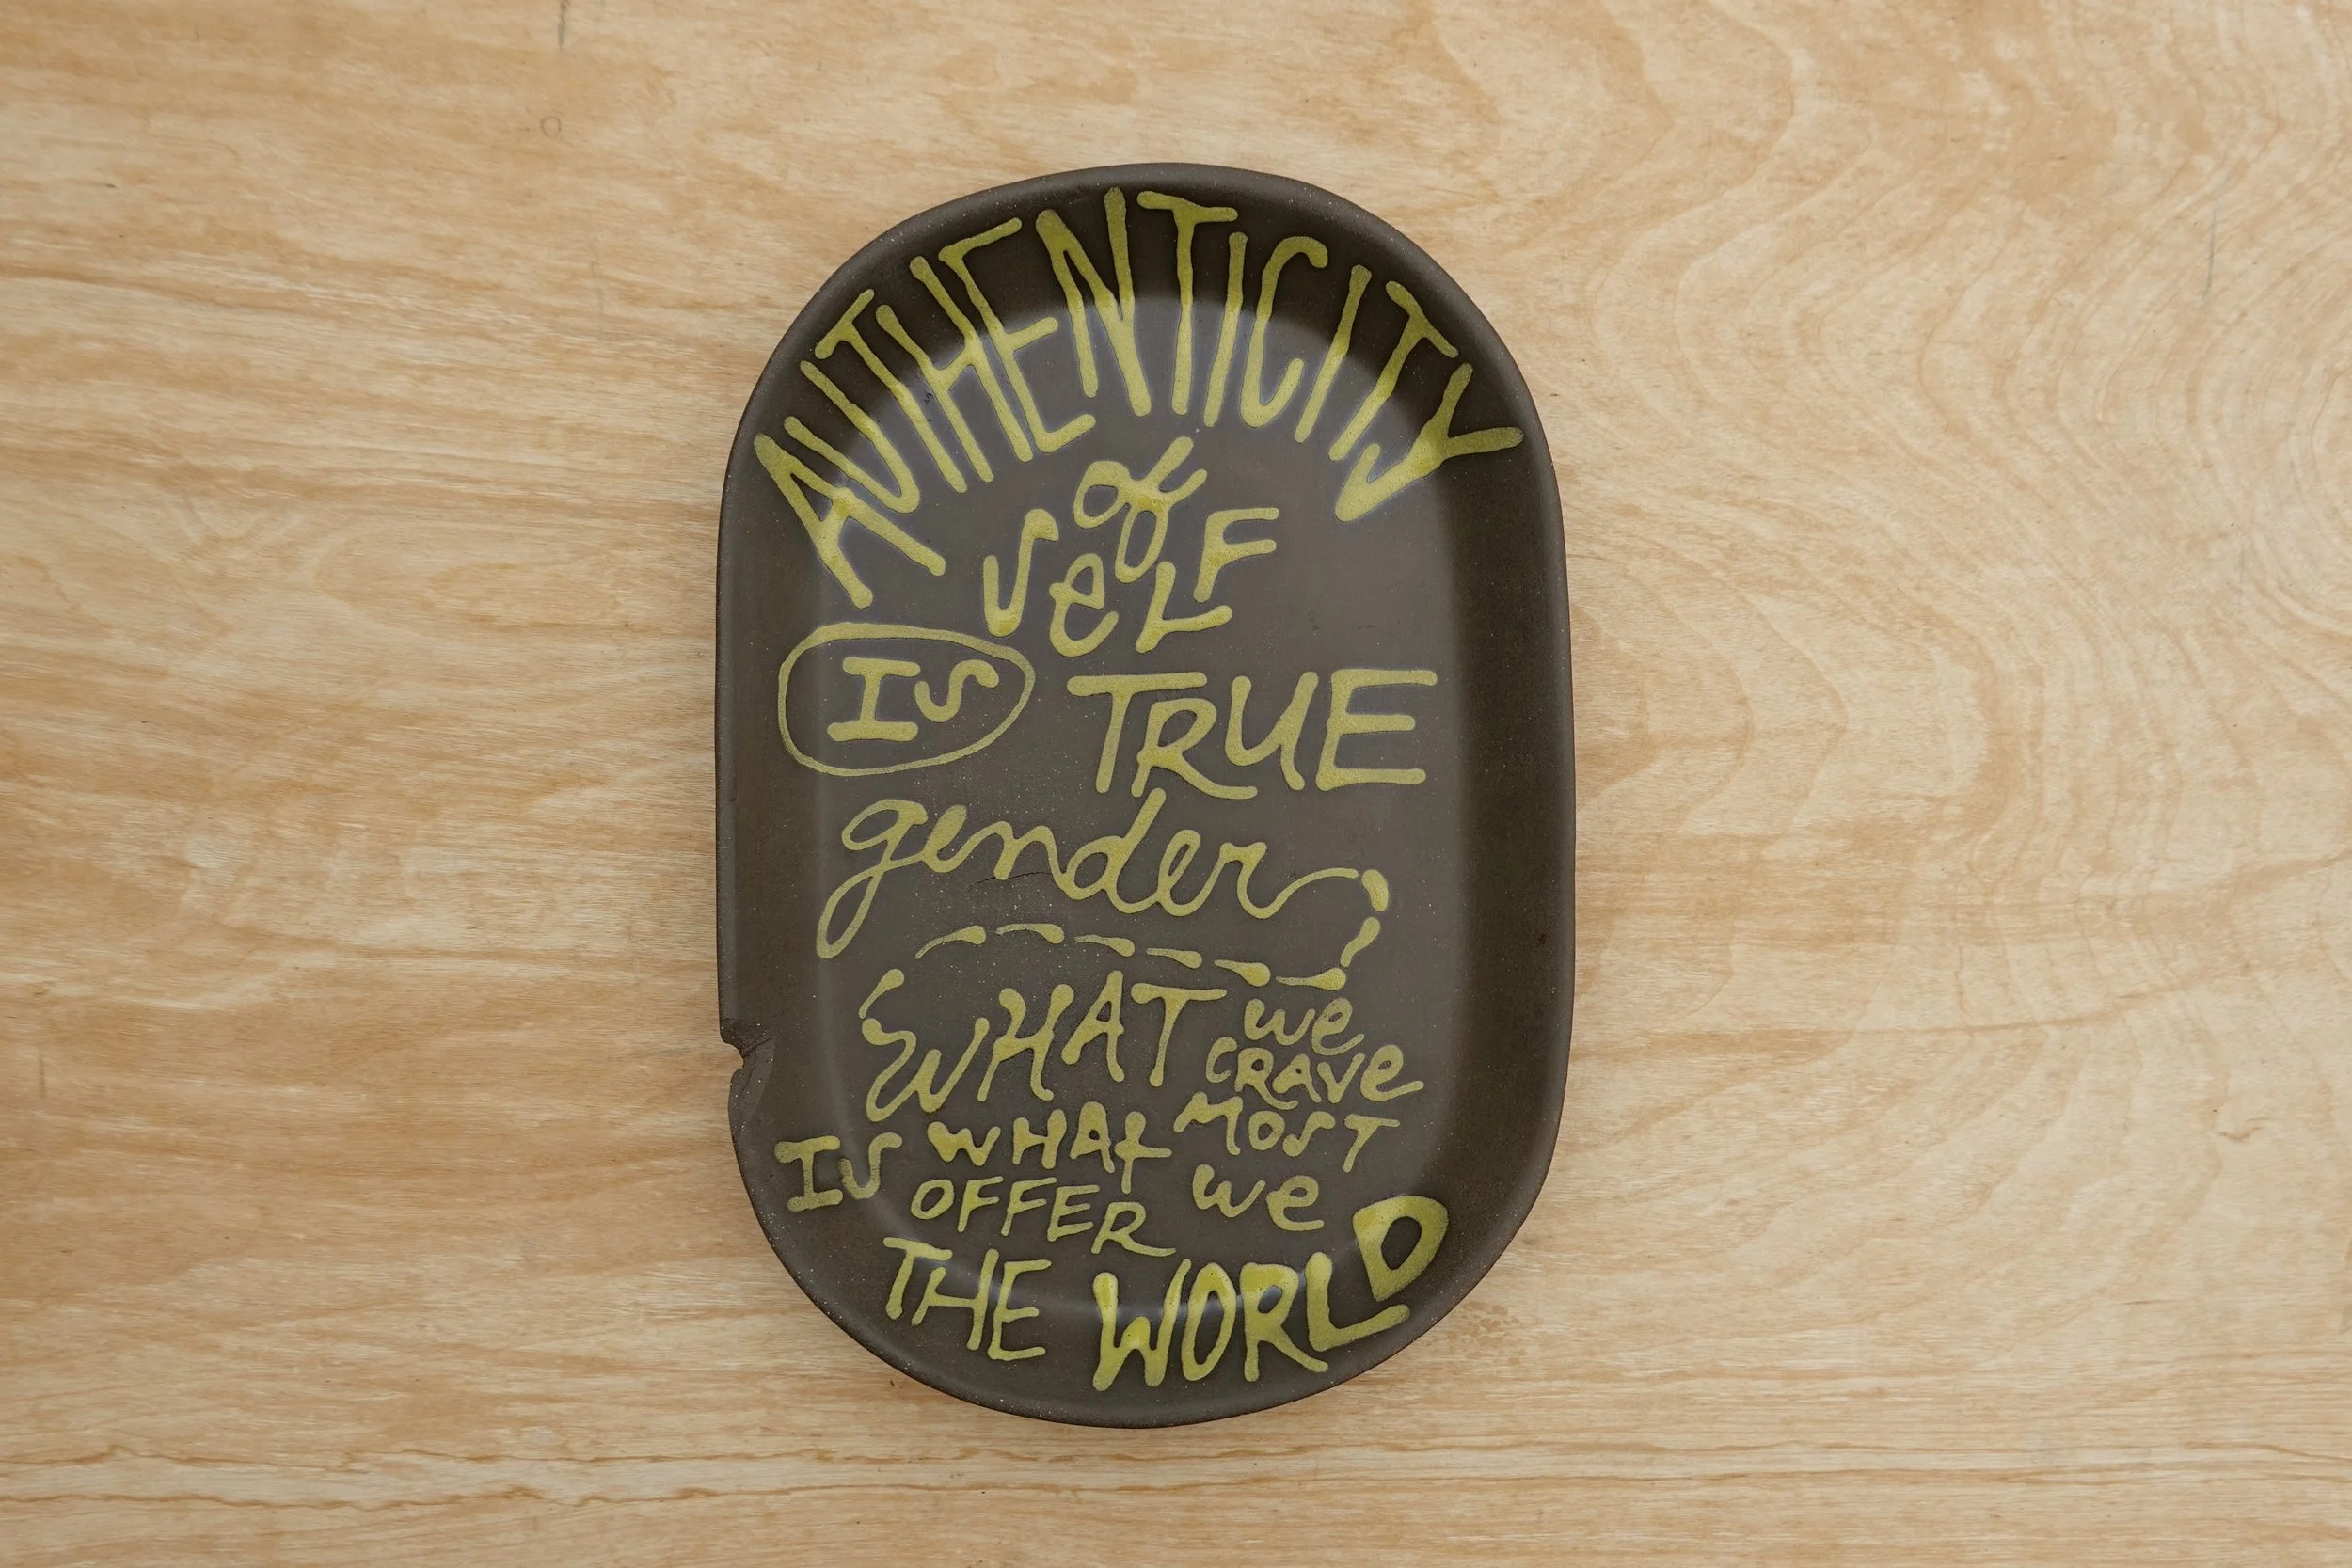 AUTHENTICITY
of
SeLF
IS TRUE
gender
WHAT we
CRAVE
MOST
IS WHAt we
OFFER
THE WORLD